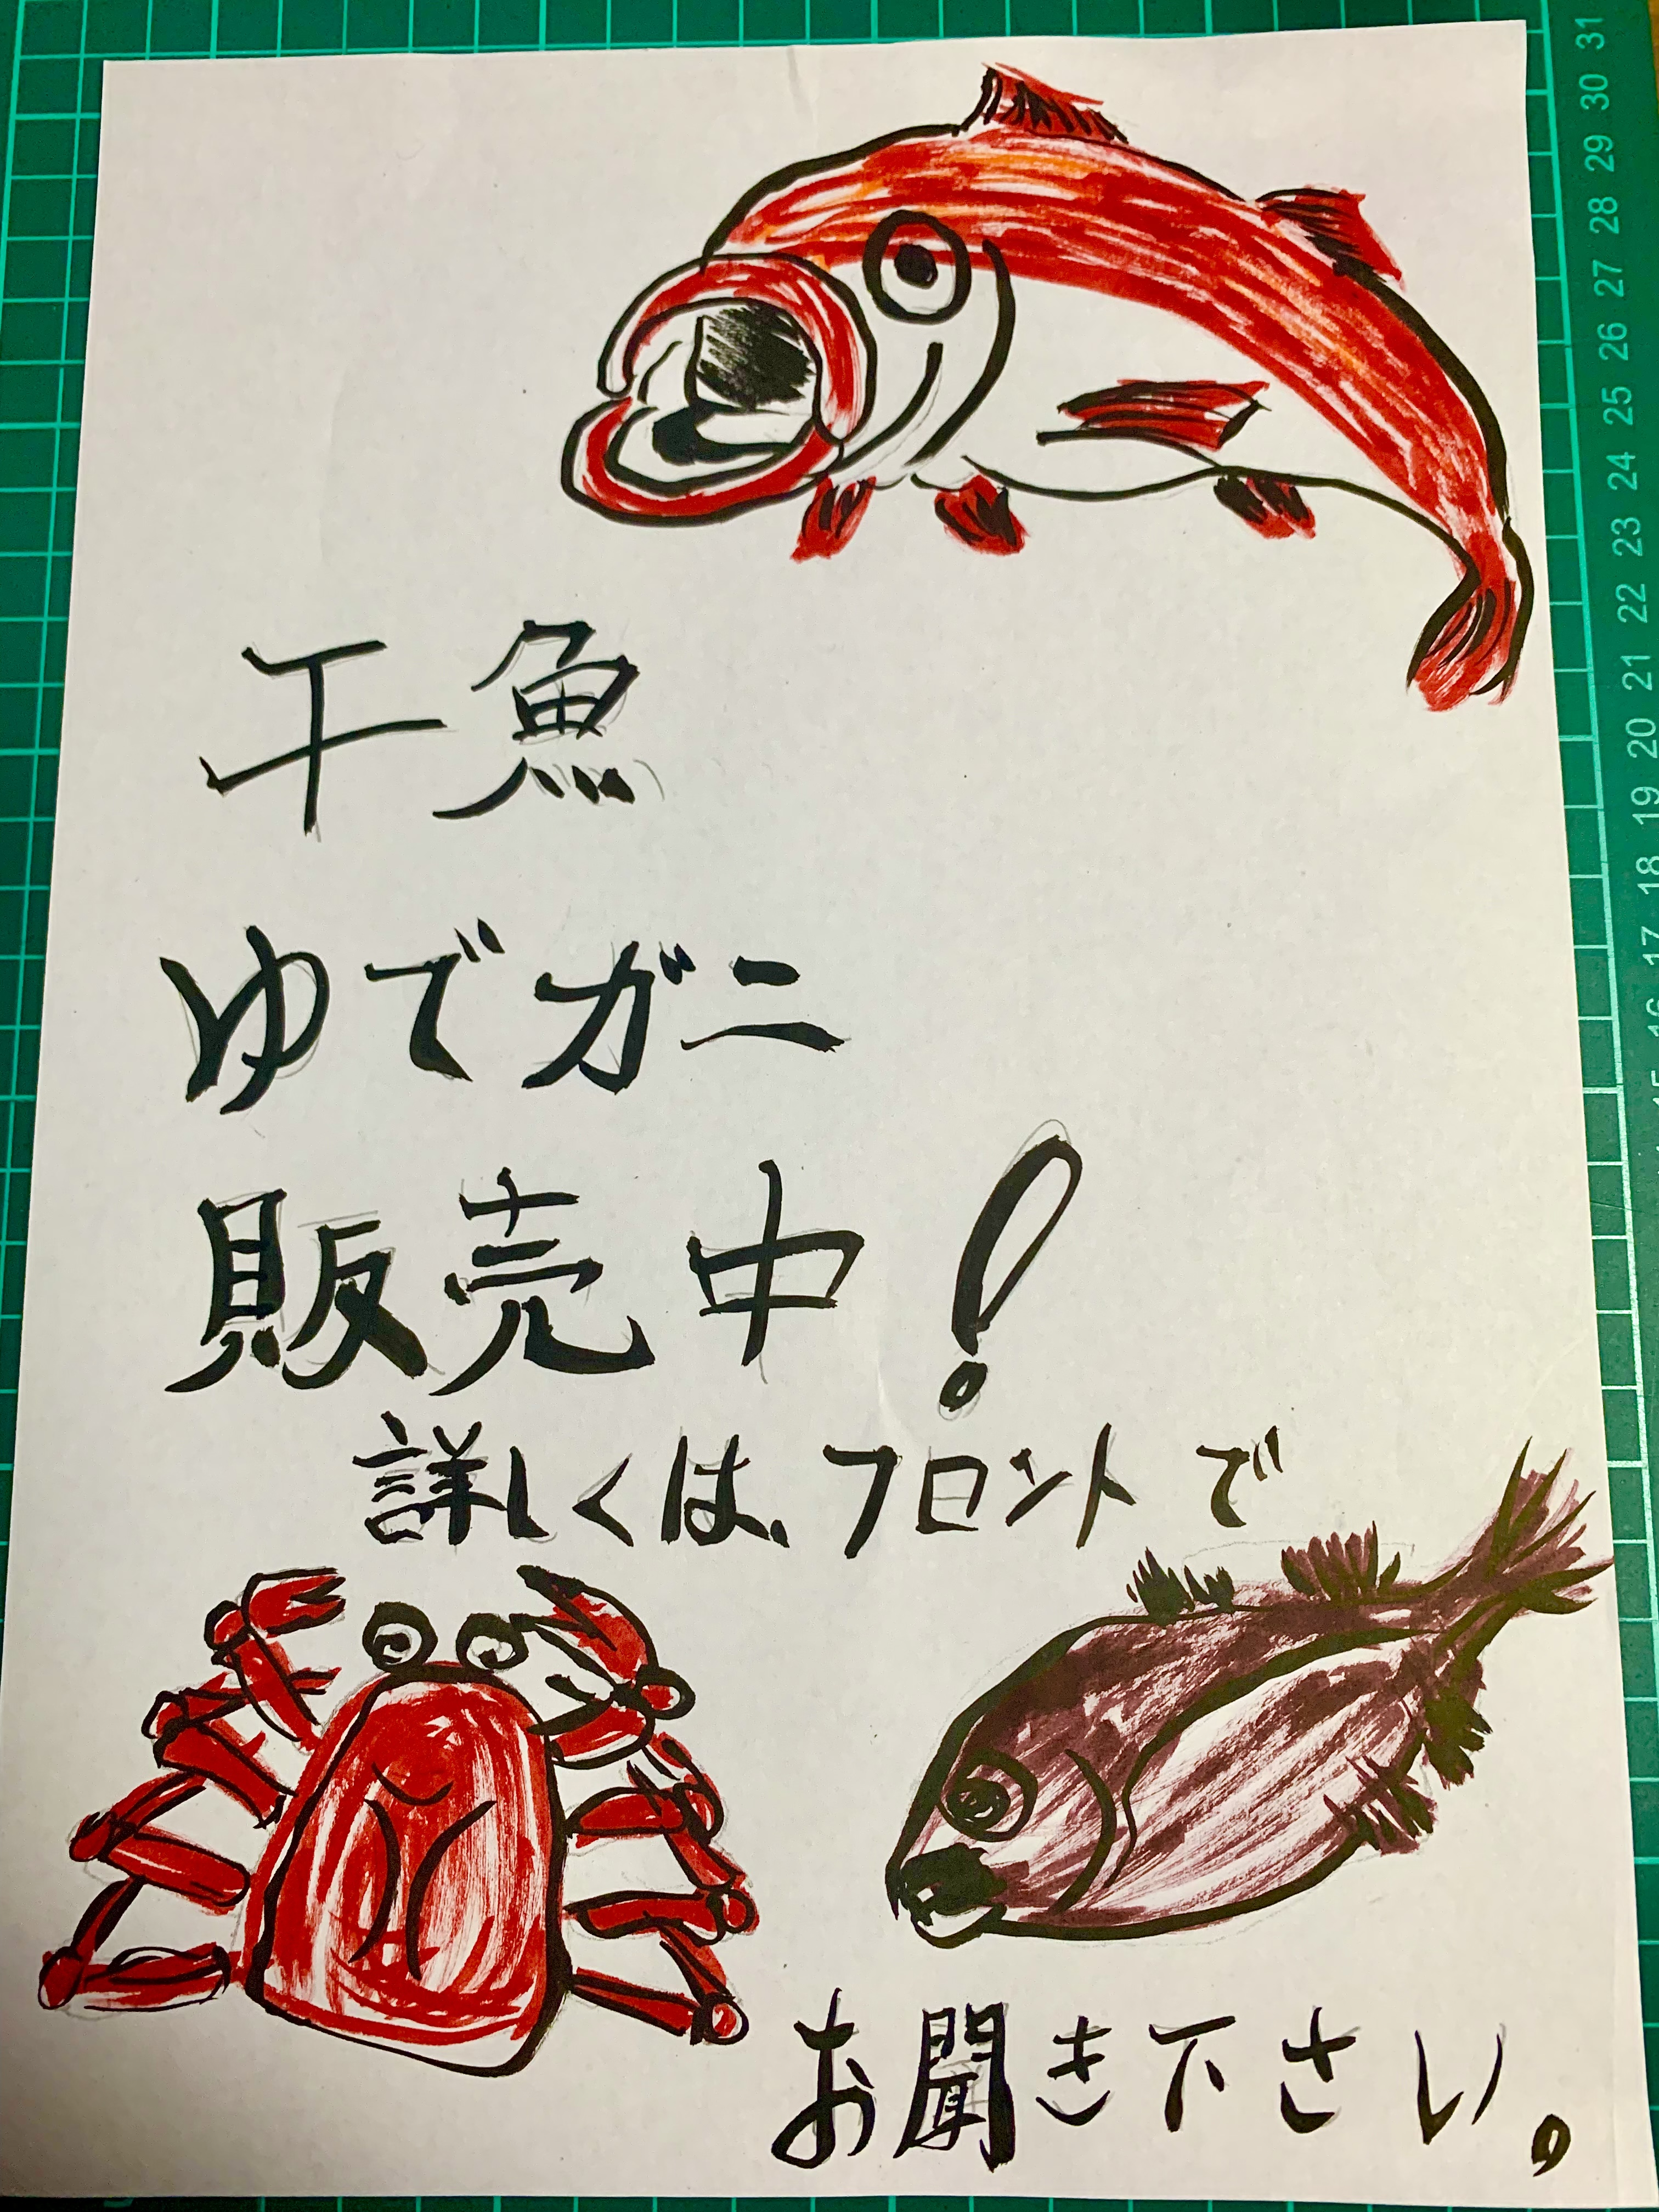 干魚
ゆでガニ
販売中!
詳しくは、フロントで
お聞き下さい。
31
30
29
28
27
26
25
24
23
22
21
20
19
18
17
16
15